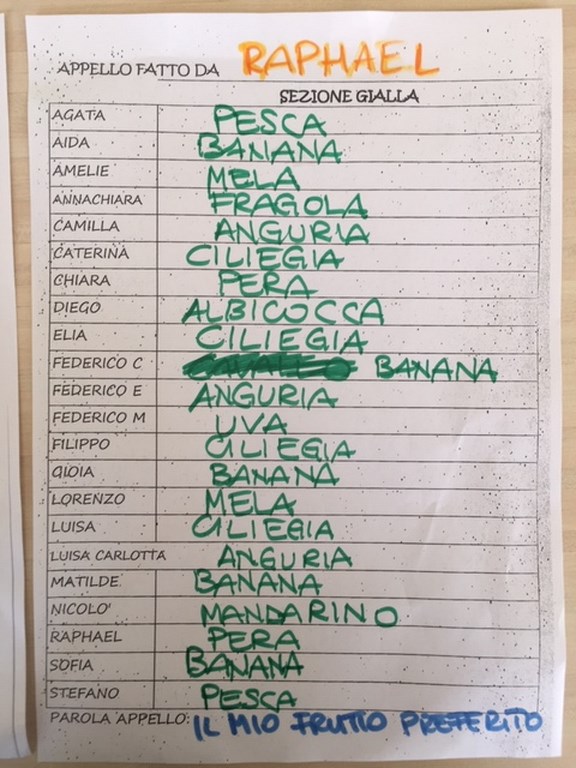 APPELLO FATTO DA RAPHAEL
SEZIONE GIALLA
AGATA PESCA
AIDA BANANA
AMELIE MELA
ANNACHIARA FRAGOLA
CAMILLA ANGURIA
CATERINA CILIEGIA
CHIARA PERA
DIEGO ALBICOCCA
ELIA CILIEGIA
FEDERICO C CAVALLO BANANA
FEDERICO E ANGURIA
FEDERICO M UVA
FILIPPO CILIEGIA
GIOIA BANANA
LORENZO MELA
LUISA CILIEGIA
LUISA CARLOTTA ANGURIA
MATILDE BANANA
NICOLO' MANDARINO
RAPHAEL PERA
SOFIA BANANA
STEFANO PESCA
PAROLA APPELLO: IL MIO FRUTTO PREFERITO